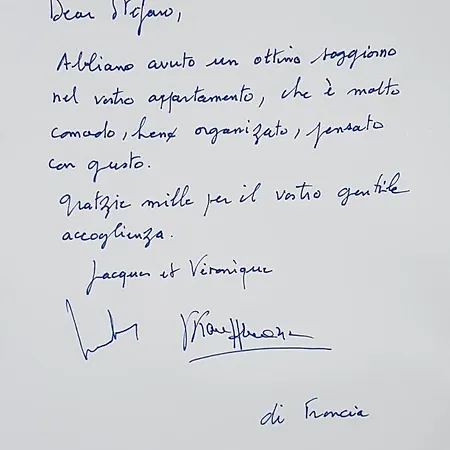 Dear Stefano,
Abbiamo avuto un ottimo soggiorno
nel vostro appartamento, che è molto
comodo, bene organizato, pensato
con gusto.
Gratzie mille per il vostro gentile
accoglienza.
Jacques et Véronique
VKauffmann
di Francia